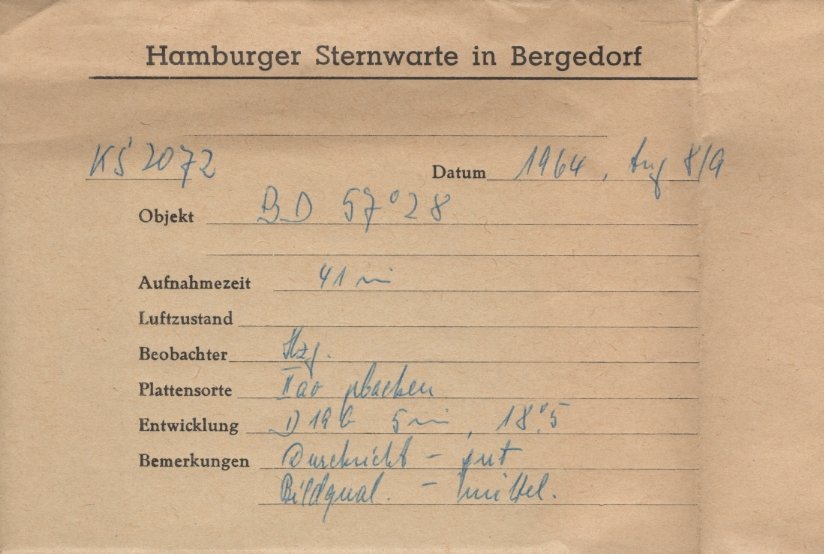 Hamburger Sternwarte in Bergedorf
KS 2072 Datum 1964, Aug 8/9
Objekt BD 57° 28
Aufnahmezeit 41 min
Luftzustand
Beobachter
Plattensorte IIao gebacken
Entwicklung D19b 5 min, 18°,5
Bemerkungen Durchsicht - gut
Bildqual. - mittel.